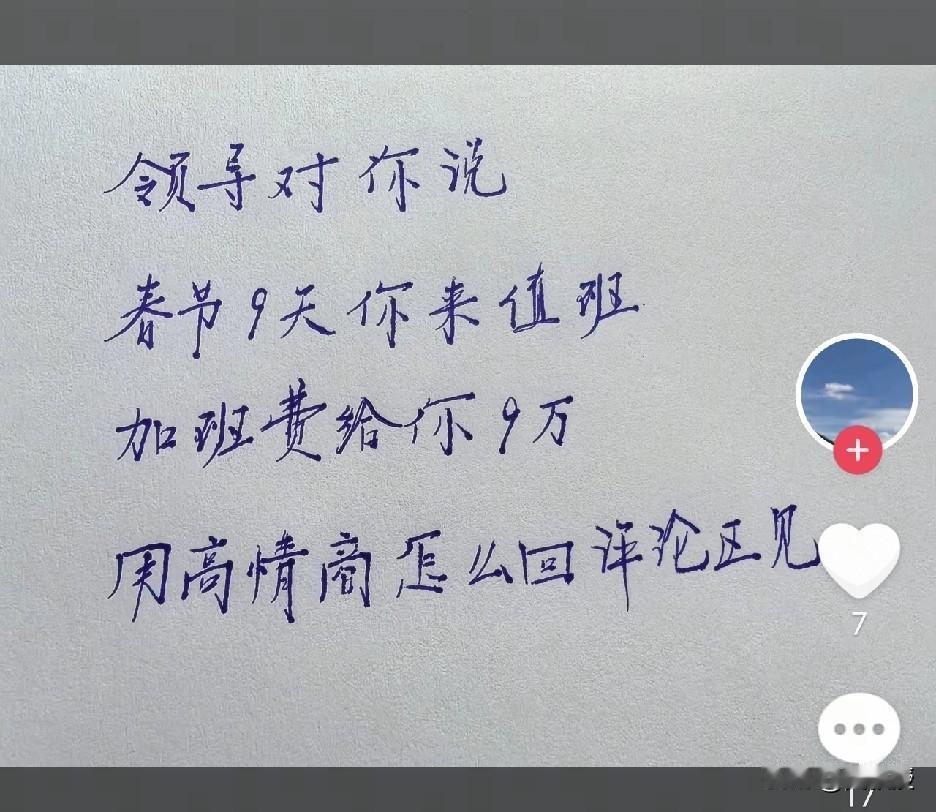 领导对你说
春节9天你来值班
加班费给你9万
用高情商怎么回评论区见
7
17